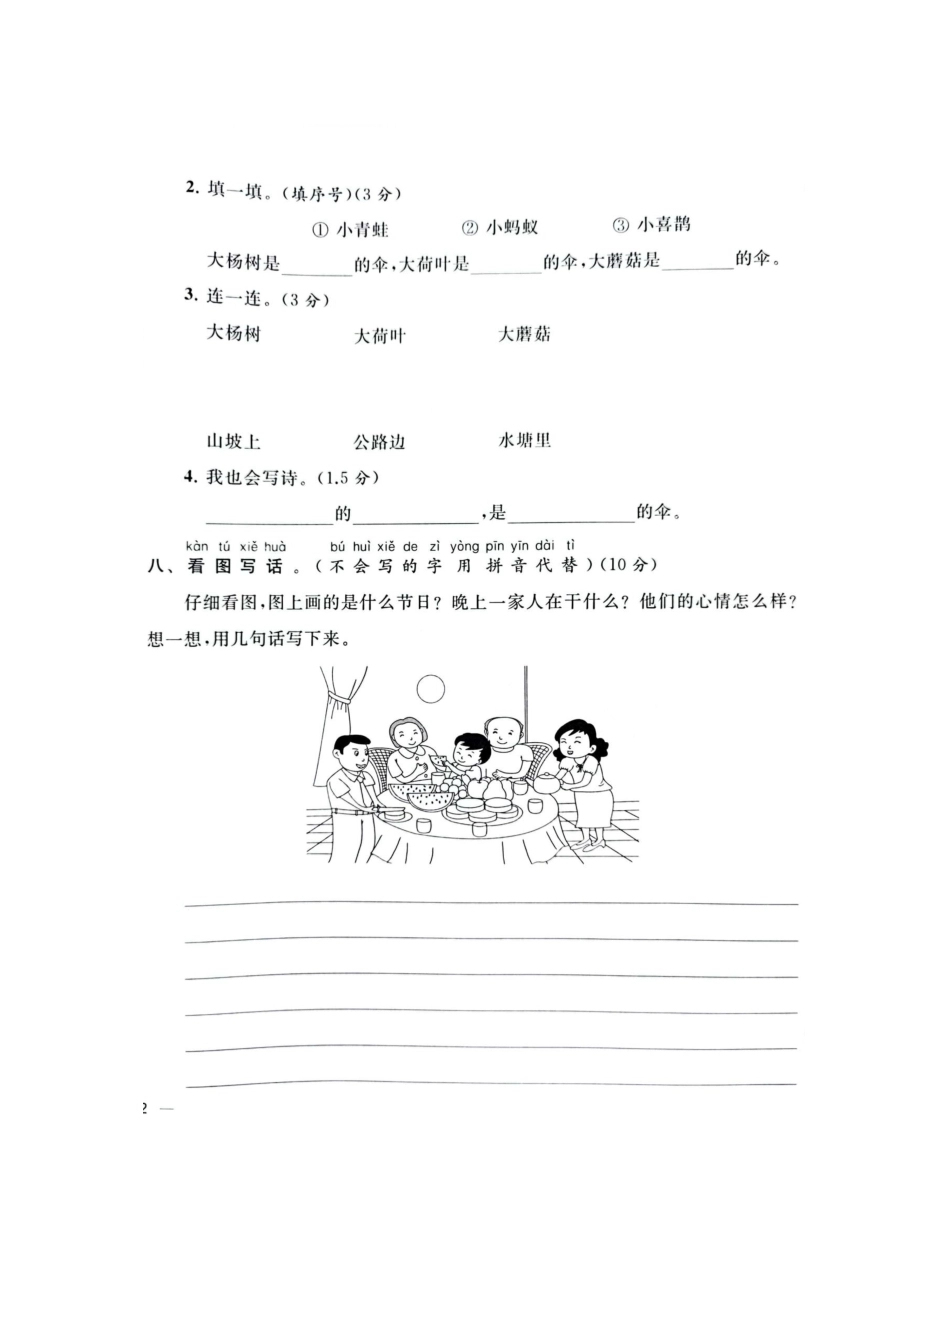 2. 填一填。(填序号)(3 分)
① 小青蛙 ② 小蚂蚁 ③ 小喜鹊
大杨树是______的伞,大荷叶是______的伞,大蘑菇是______的伞。
3. 连一连。(3 分)
大杨树 大荷叶 大蘑菇
山坡上 公路边 水塘里
4. 我也会写诗。(1.5 分)
__________的__________,是__________的伞。
kàn tú xiě huà bú huì xiě de zì yòng pīn yīn dài tì
八、看图写话。(不会写的字用拼音代替)(10 分)
仔细看图,图上画的是什么节日?晚上一家人在干什么?他们的心情怎么样?
想一想,用几句话写下来。
2 —